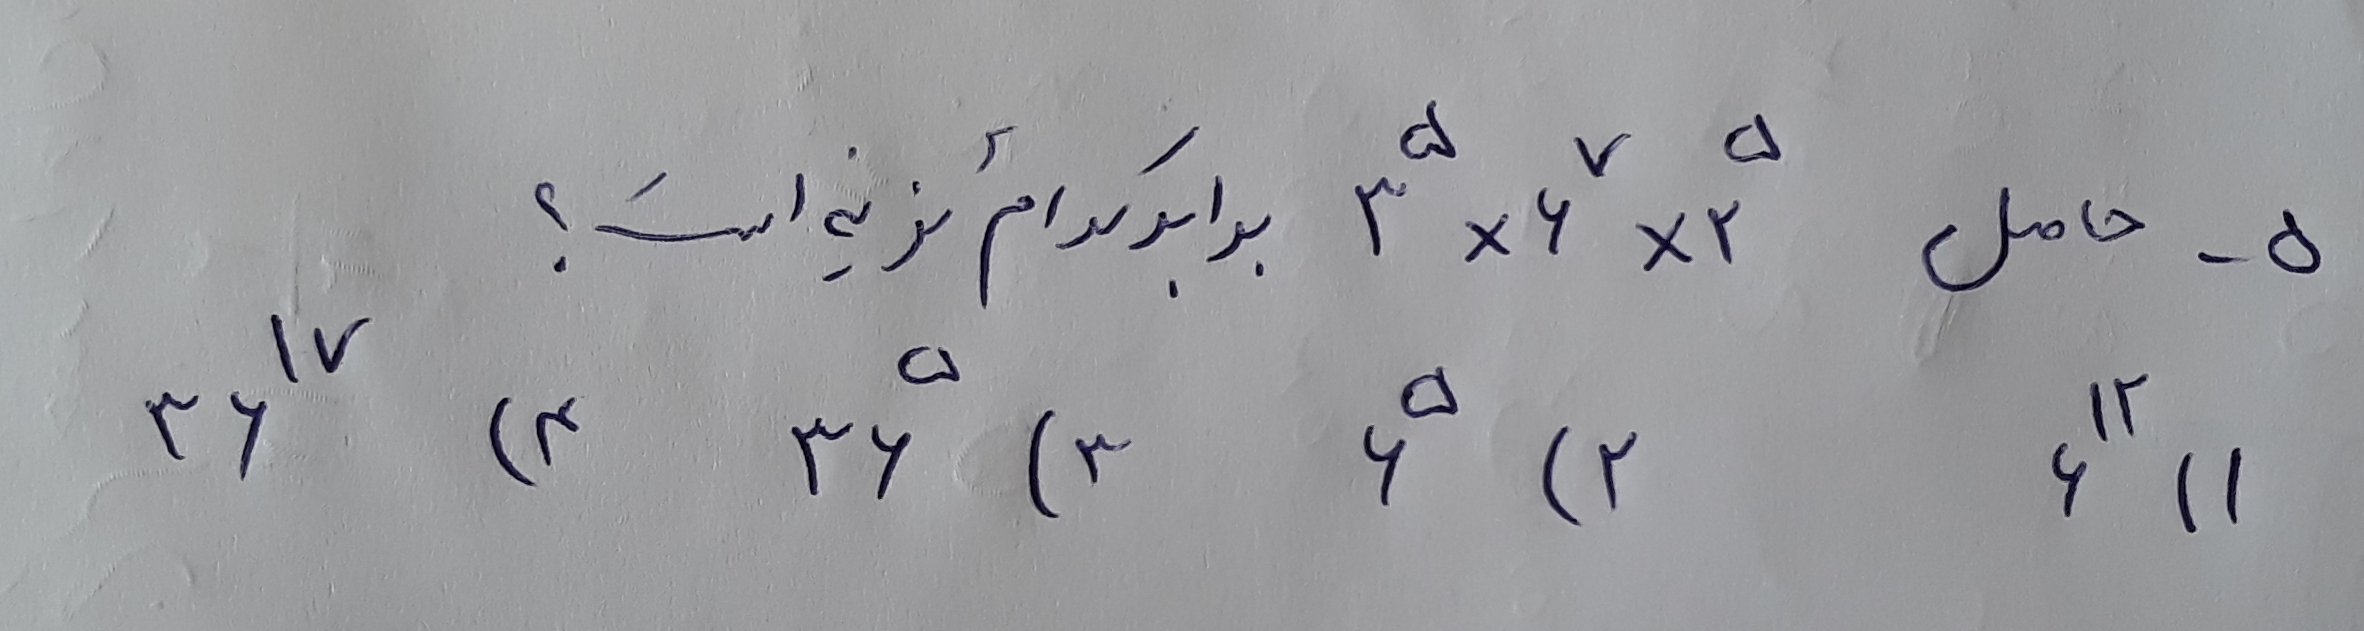 ۵- حاصل ۳^۵ × ۶^۷ × ۲^۵ برابر کدام گزینه است؟
۱) ۶^۱۲ ۲) ۶^۵ ۳) ۳۶^۵ ۴) ۳۶^۱۷